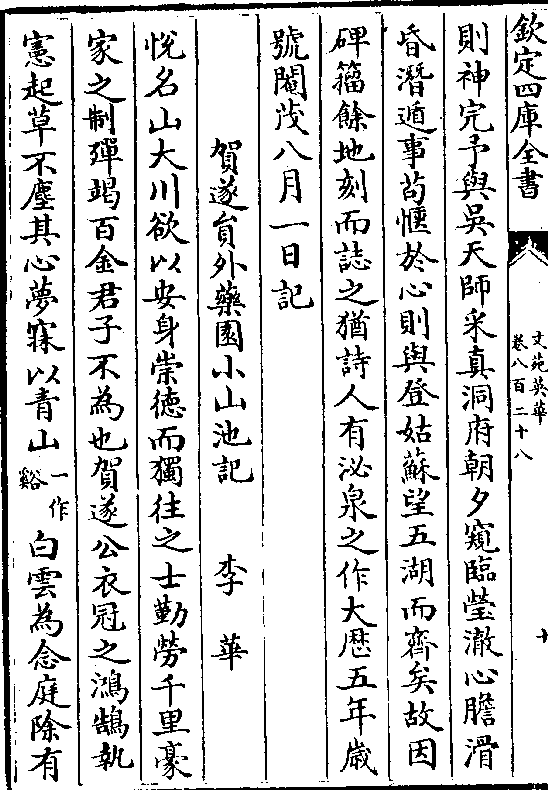 欽定四庫全書
文苑英華
卷八百二十八
十
則神完予與吳天師采真洞府朝夕窺臨瑩澈心膽滑
昏潛遁事茍愜於心則與登姑蘇望五湖而齊矣故因
碑籀餘地刻而誌之猶詩人有泌泉之作大厯五年歲
號閹茂八月一日記
賀遂員外藥園小山池記 李華
悅名山大川欲以安身崇德而獨往之士勤勞千里豪
家之制殫竭百金君子不為也賀遂公衣冠之鴻鵠執
憲起草不塵其心夢寐以青山一作谿白雲為念庭除有